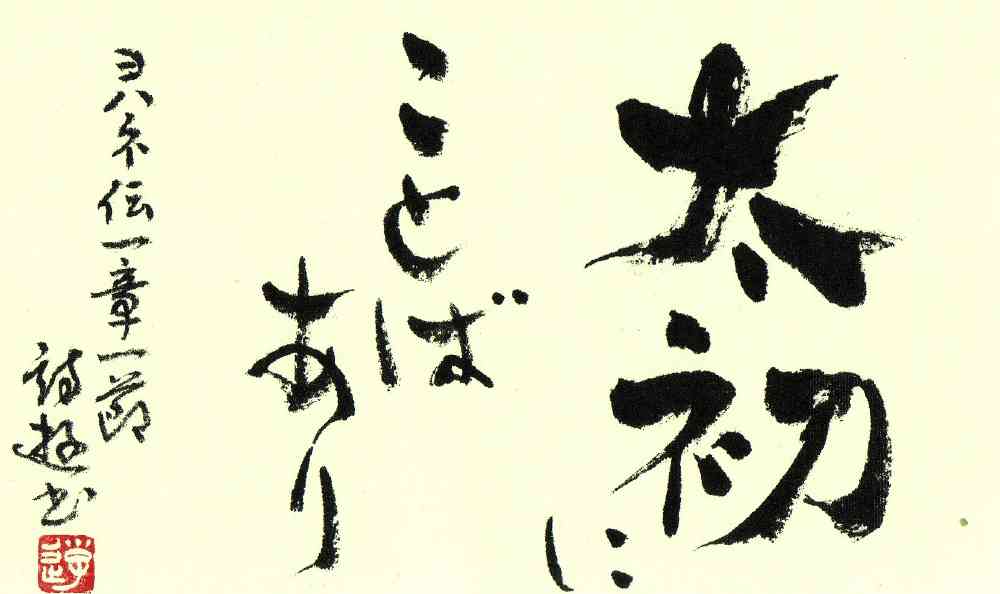 太初に
ことば
あり
ヨハネ伝一章一節
詩遊書